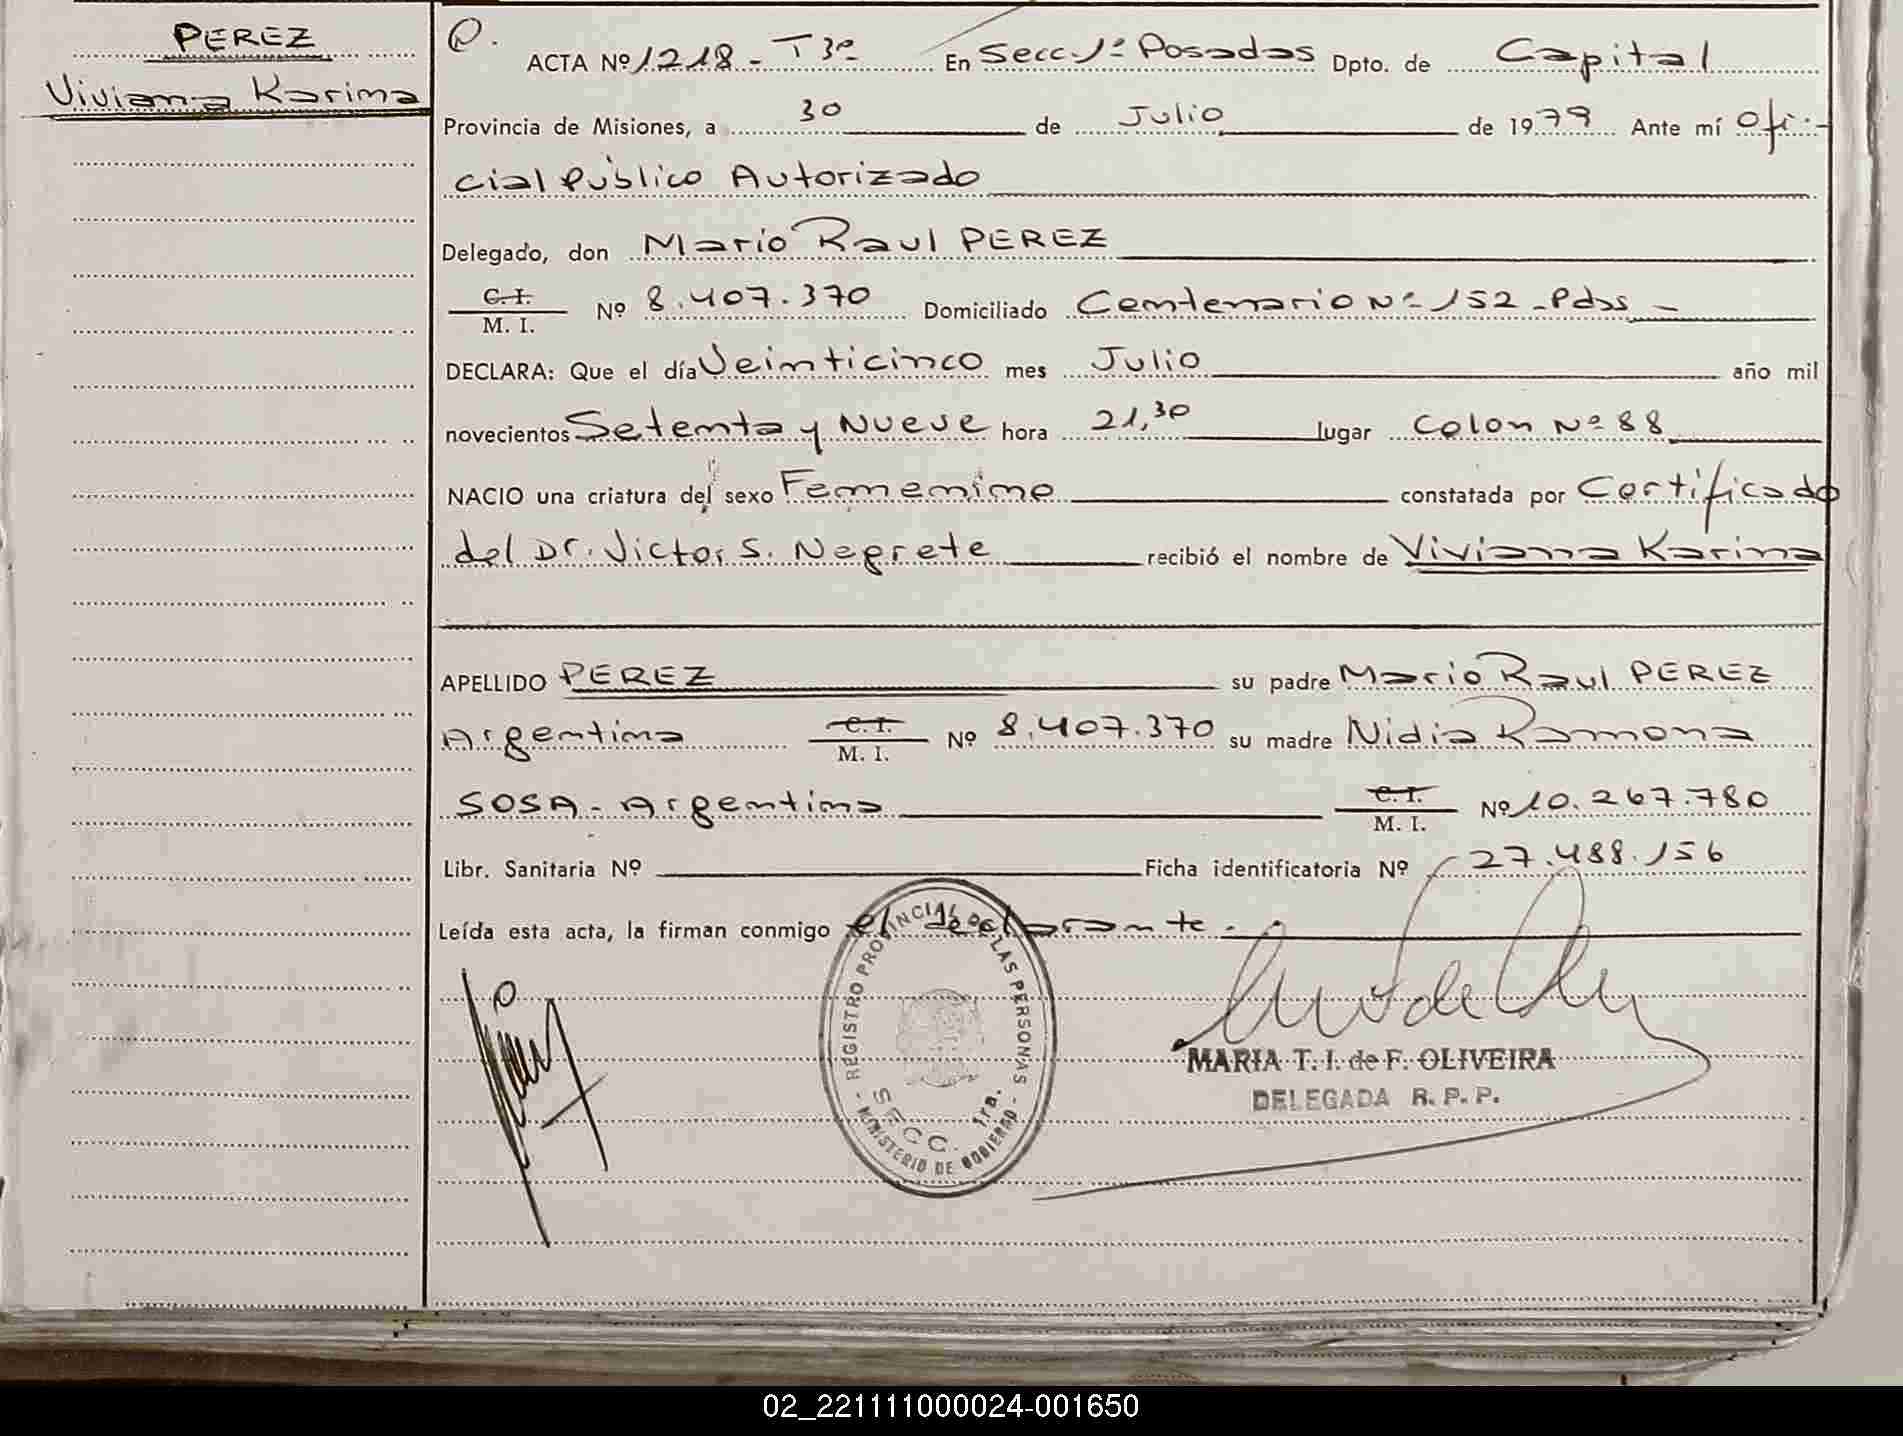 PEREZ
Viviana Karina
P.
ACTA Nº 1218 - T 3º En Secc. 1ª Posadas Dpto. de Capital
Provincia de Misiones, a 30 de Julio de 1979 Ante mí Ofi-
cial Público Autorizado
Delegado, don Mario Raul PEREZ
C. I.
M. I. Nº 8.407.370 Domiciliado Centenario Nº 152 - Pdas -
DECLARA: Que el día Veinticinco mes Julio año mil
novecientos Setenta y Nueve hora 21,30 lugar Colon Nº 88
NACIO una criatura del sexo Femenino constatada por Certificado
del Dr. Victor S. Negrete recibió el nombre de Viviana Karina
APELLIDO PEREZ su padre Mario Raul PEREZ
Argentina C. I.
M. I. Nº 8.407.370 su madre Nidia Ramona
SOSA - Argentina C. I.
M. I. Nº 10.267.780
Libr. Sanitaria Nº Ficha identificatoria Nº 27.488.156
Leída esta acta, la firman conmigo el declarante -
REGISTRO PROVINCIAL DE LAS PERSONAS
SECC. 1ra.
- MINISTERIO DE GOBIERNO -
MARIA T. I. de F. OLIVEIRA
DELEGADA R. P. P.
02_221111000024-001650